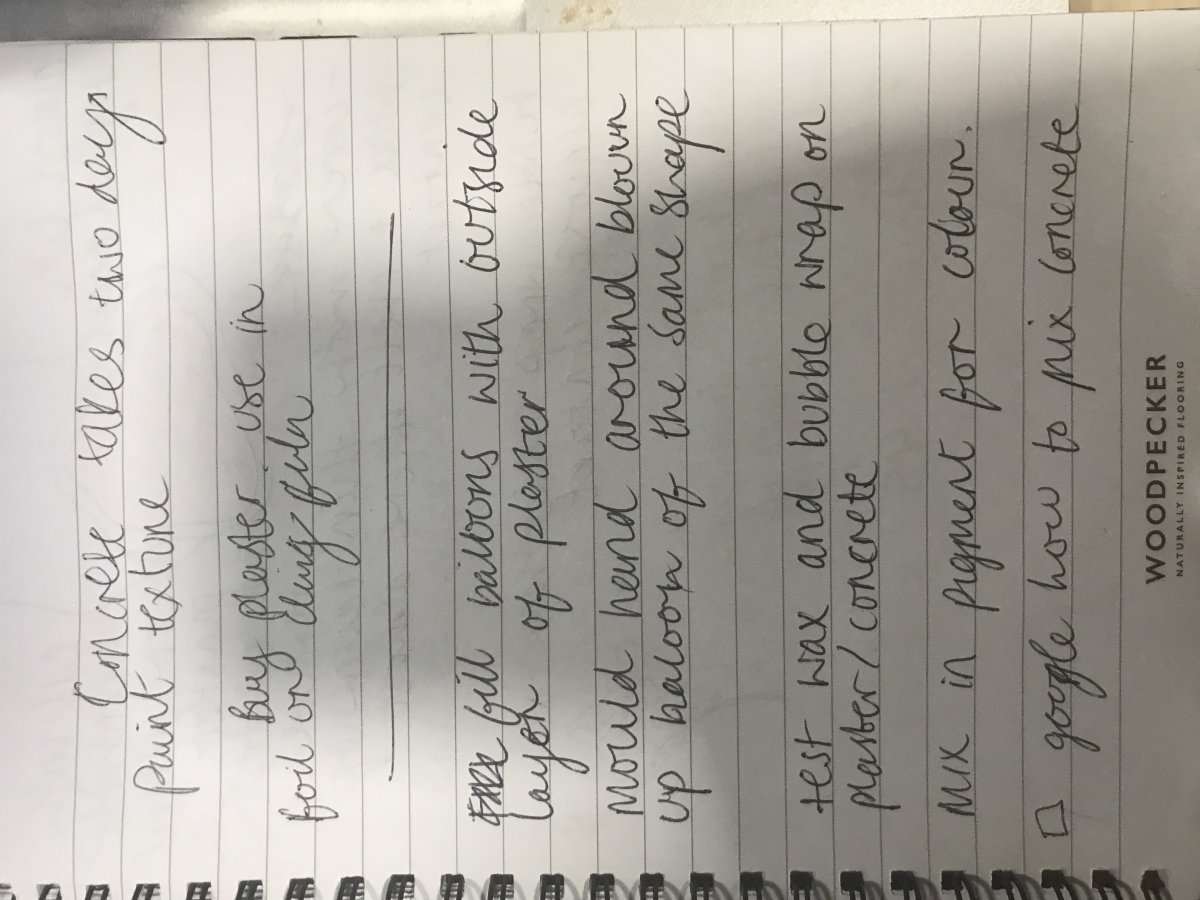 Concrete takes two days
paint texture
Buy plaster use in
foil or cling film
fill balloons with outside
layer of plaster
Mould hand around blown
up baloon of the same shape
test wax and bubble wrap on
plaster/concrete
Mix in pigment for colour.
google how to mix concrete
WOODPECKER
NATURALLY INSPIRED FLOORING